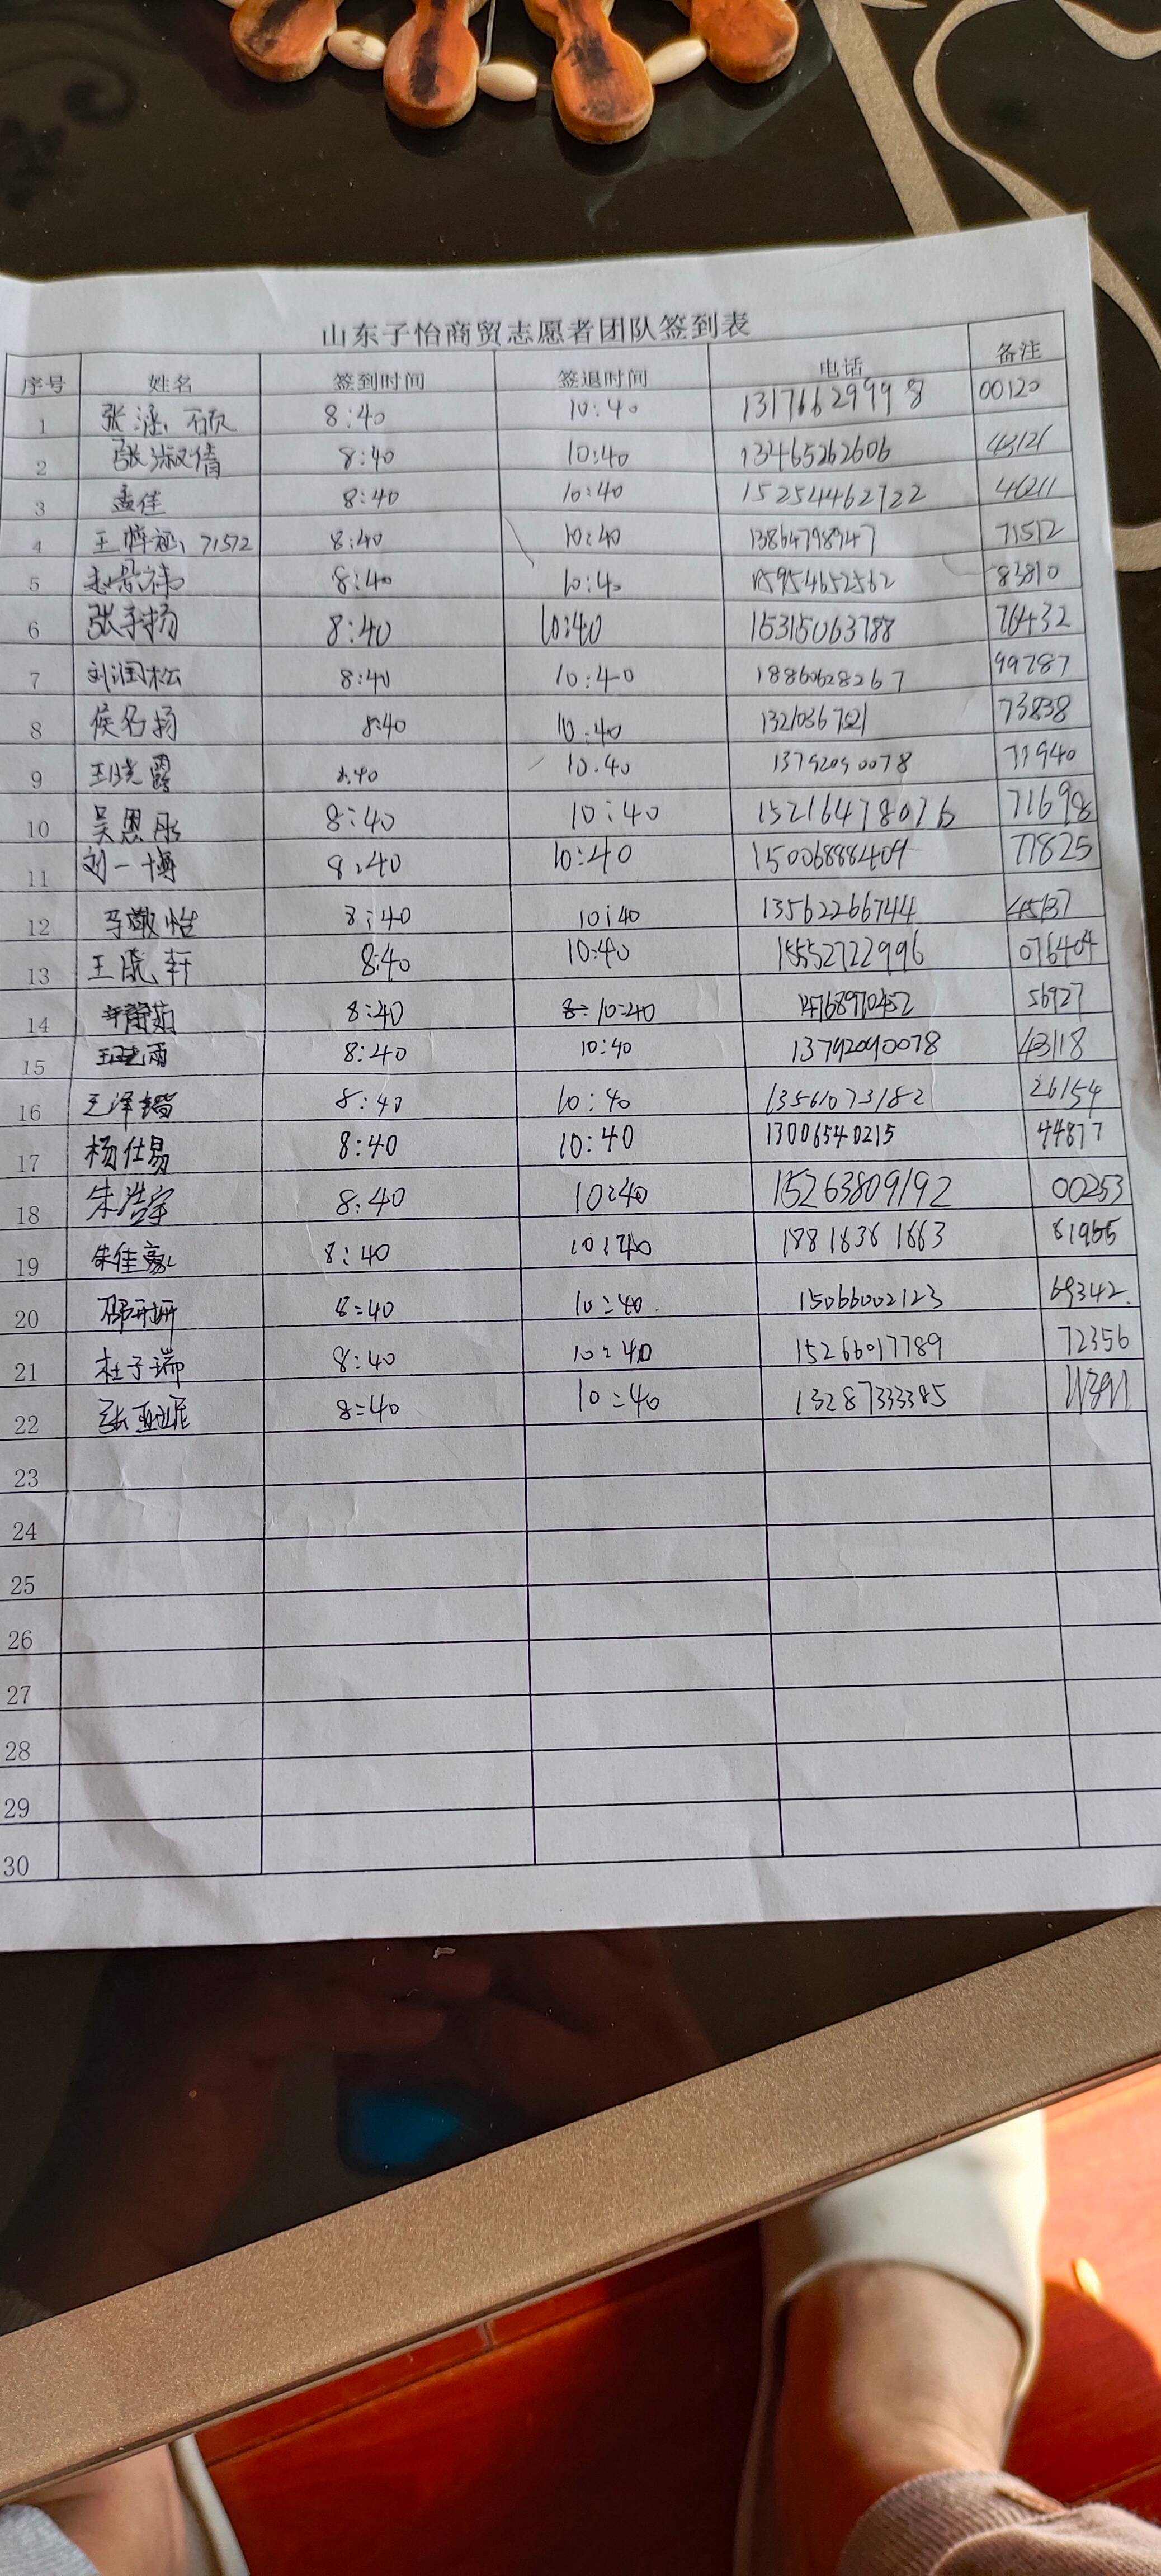 山东子怡商贸志愿者团队签到表
序号 姓名 签到时间 签退时间 电话 备注
1 张 硕 8:40 10:40 13176629998 00120
2 张淑倩 8:40 10:40 13465262606 43121
3 孟佳 8:40 10:40 15254462722 46211
4 王梓涵 71572 8:40 10:40 13864798947 71512
5 赵景祎 8:40 10:40 15954652562 83810
6 张予扬 8:40 10:40 15315063788 76432
7 刘润松 8:40 10:40 18860628267 99787
8 侯名扬 8:40 10:40 73838
9 王晓露 8:40 10.40 13792090078 71940
10 吴恩彤 8:40 10:40 15216478076 71698
11 刘一博 8:40 10:40 15006888409 77825
12 马敬怡 8:40 10:40 13562266744 45137
13 王晓轩 8:40 10:40 15552722996 076404
14 8:40 10:40 56927
15 王晓雨 8:40 10:40 13792090078 43118
16 王泽锴 8:40 10:40 13561073182 26154
17 杨仕易 8:40 10:40 13006540215 44877
18 朱浩宇 8:40 10:40 15263809192 00253
19 朱佳 8:40 10:40 18816361663 81965
20 邵珊珊 8:40 10:40 15066002123 69342.
21 杜子瑞 8:40 10:40 15266017789 72356
22 张亚妮 8:40 10:40 13287333385
23
24
25
26
27
28
29
30